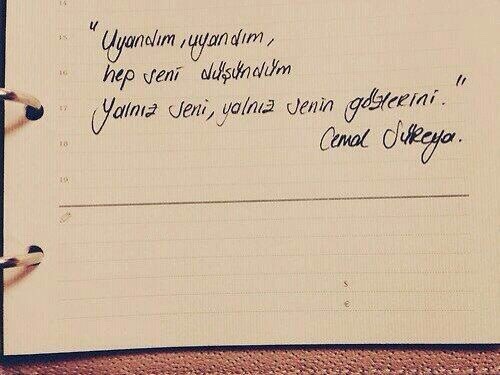 14
"Uyandım, uyandım,
15
hep seni düşündüm
16
Yalnız seni, yalnız senin gözlerini."
17
Cemal Süreya.
18
19
$
€